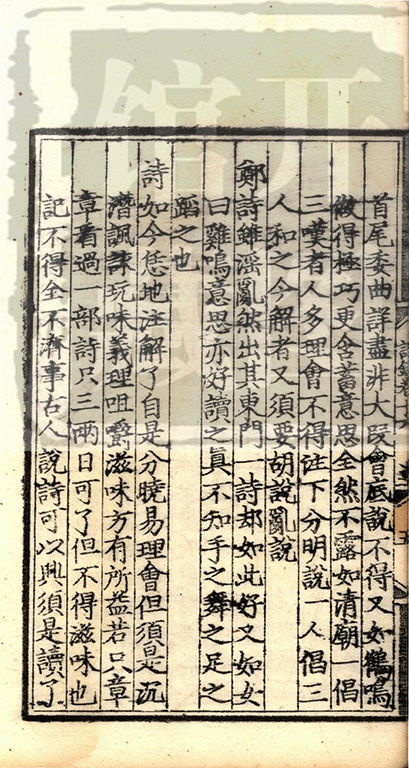 首尾委曲詳盡非大段會底說不得又如鶴鳴
做得極巧更含蓄意思全然不露如清廟一倡
三嘆者人多理會不得註下分明說一人倡三
人和之今解者又須要胡說亂說
鄭詩雖淫亂然出其東門一詩却如此好又如女
曰雞鳴意思亦好讀之真不知手之舞之足之
蹈之也
詩如今恁地注解了自是分曉易理會但須是沉
潛諷誦玩味義理咀嚼滋味方有所益若只章
章看過一部詩只三兩日可了但不得滋味也
記不得全不濟事古人說詩可以興須是讀了